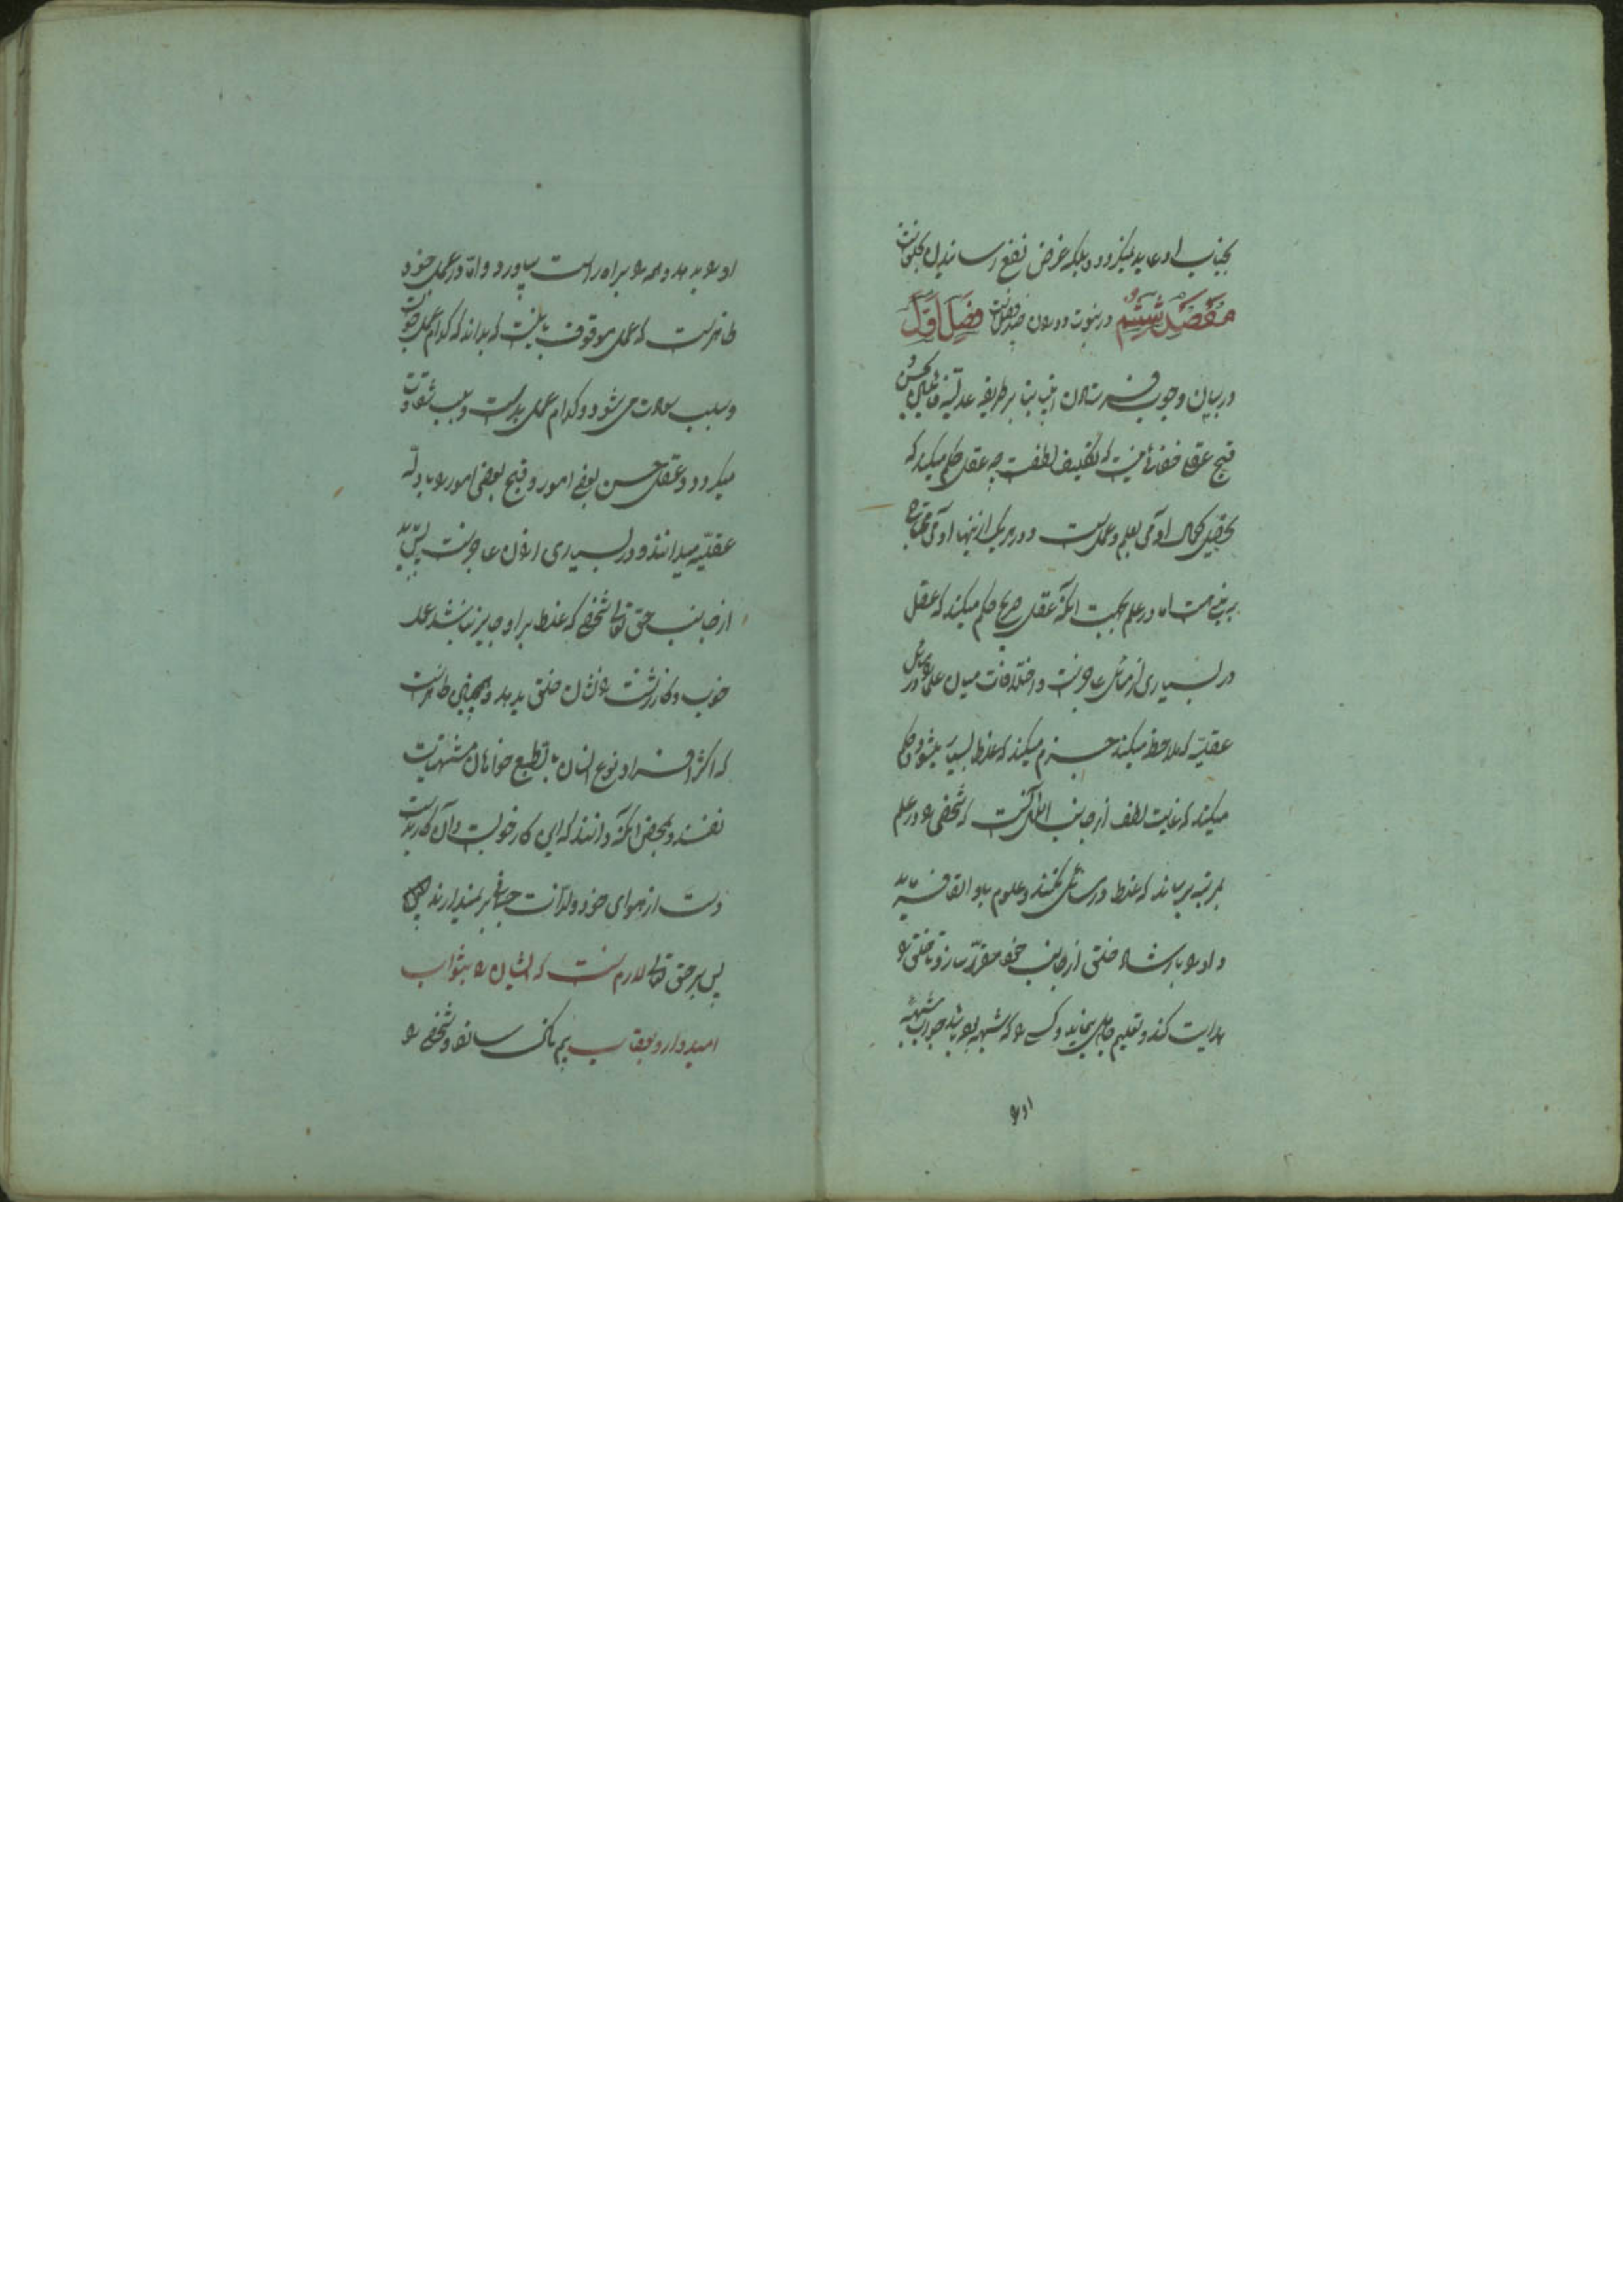 بجناب او عاید میگردد بلکه غرض نفع رسانیدن بمخلوقات
مقصد ششم در نبوت و درون چند فصلست فصل اول
در بیان وجوب فرستادن انبیا بنا بر طریقه عدلیه قایلین بحسن و
قبح عقلی خفا نیست که تکلیف لطفست چه عقل حکم میکند که
تحصیل کمال آدمی بعلم و عملست و در هر یک از ینها آدمی محتاج
به پیغمبر است اما در علم بجهت آنکه عقل صریح حکم میکند که عقل
در بسیاری از مسائل عاجزست و اختلافات میان علما در مسائل
عقلیه که ملاحظه میکند جزم میکند که غلط بسیار میشود و حکم
میکند که غایت لطف از جانب الله آنست که شخصی را در علم
بمرتبه برساند که غلط در مسائل نکند و علوم باو القا فرماید
و او را بارشاد خلق از جانب خود مقرر سازد تا خلق را
هدایت کند و تعلیم جاهل نماید و کسی را که شبهه بوده باشد جواب شبهه
او را
او را بدهد و همه را براه راست بیاورد و اما در عمل خود
ظاهرست که عمل موقوف باینست که بداند که کدام عمل خوبست
و سبب سعادت می‌شود و کدام عمل بدست و سبب شقاوت
میگردد و عقل حسن بعضی امور و قبح بعضی امور را بادله
عقلیه میداند و در بسیاری از ان عاجزست پس باید
از جانب حق تعالی شخصی که غلط برا و جایز نباشد عمل
خوب و کار زشت را نشان خلق بدهد و همچنین ظاهرست
که اکثر افراد نوع انسان بالطبع خواهان مشتهیات
نفسند و بمحض آنکه دانند که این کار خوبست و آن کار بدست
دست از هوای خود و لذات جسمانی بر نمیدارند
پس بر حق تعالی لازم است که ایشان را بثواب
امیدوار و بعقاب بیم ناک سازد و شخصی را